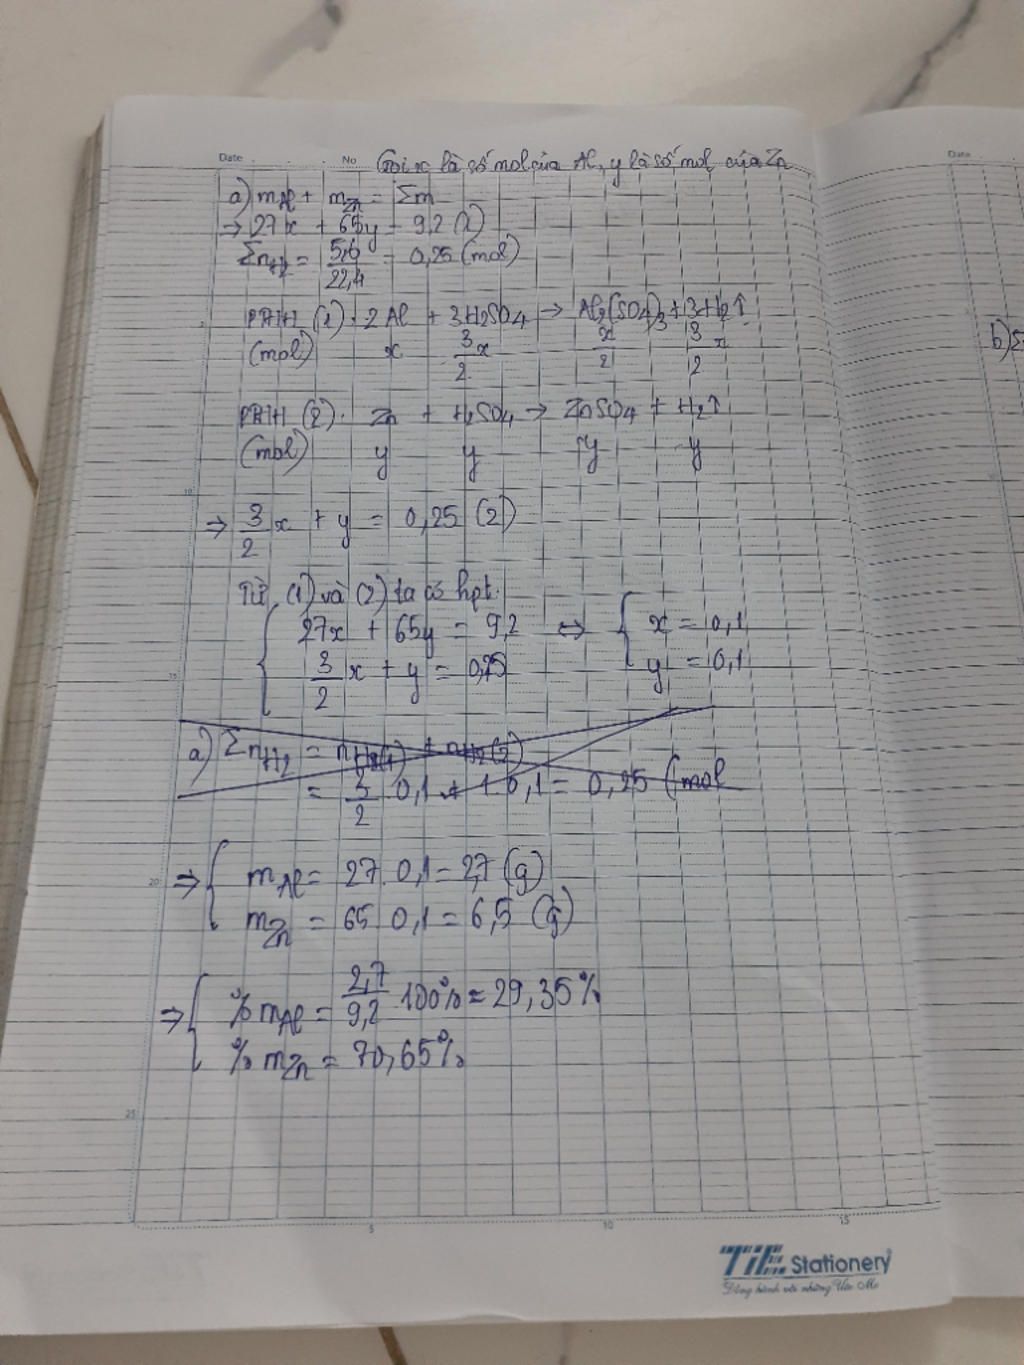 Date No Gọi x là số mol của Al, y là số mol của Zn
Date
a) mAl + mZn = Σm
→ 27x + 65y = 9,2 (1)
ΣnH2 = 5,6/22,4 = 0,25 (mol)
PTHH (1): 2Al + 3H2SO4 → Al2(SO4)3 + 3H2↑
(mol) x 3/2 x x/2 3/2 x
b) Σ
PTHH (2): Zn + H2SO4 → ZnSO4 + H2↑
(mol) y y y y
10
⇒ 3/2 x + y = 0,25 (2)
Từ (1) và (2) ta có hpt:
{ 27x + 65y = 9,2 ⇔ { x = 0,1
3/2 x + y = 0,25 y = 0,1
15
a) ΣnH2 = nH2(1) + nH2(2)
= 3/2 . 0,1 + 1 . 0,1 = 0,25 (mol
20
⇒ { mAl = 27 . 0,1 = 2,7 (g)
mZn = 65 . 0,1 = 6,5 (g)
⇒ { % mAl = 2,7/9,2 . 100% = 29,35%
% mZn = 70,65%
25
5 10 15
TiE Stationery
Đồng hành với những Ước Mơ